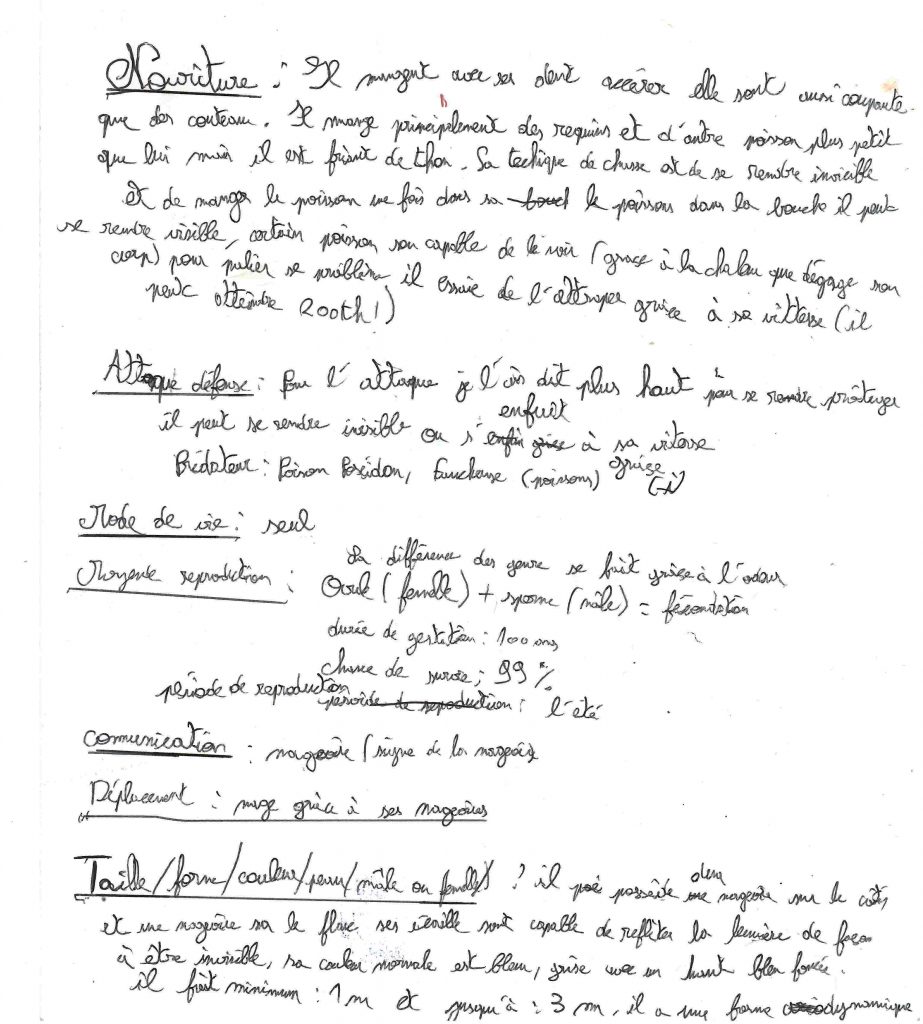 Nouriture : Il mangent avec ses dent accérer elle sont aussi coupante
que des couteau. Il mange principalement des requins et d'autre poisson plus petit
que lui mais il est friant de thon. Sa techique de chasse est de se rendre invisible
et de manger le poisson une fois dans sa bouch le poisson dans la bouche il peut
se rendre visible, certain poisson son capable de le voir (grace à la chaleur que dégage son
corp) pour palier se problème il essaie de l'attraper grâce à sa vittesse (il
peut atteindre 200kh!)
Attaque défense : Pour l'attaque je l'ais dit plus haut pour se rendre protéger
il peut se rendre invisible ou s'enfuit à sa vitesse
grâce
Prédateur : Poison Poséidon, Faucheuse (poissons)
Mode de vie : seul
La différence des genre se fait grâce à l'odeur
Moyente reproduction : Ovule (femelle) + sperme (mâle) = fécondation
durée de gestation : 100 ans
chance de survie : 99 %
période de reproduction : l'été
comunication : nageoire (signe de la nageoire
Déplacement : nage grâce à ses nageoires
Taille/forme/couleur/peau/mâle ou femelle) : il possède deux nageoire sur le côtés
et une nageoire sur le flanc ses écaille sont capable de refléter la lumière de façon
à être invisible, sa couleur normale est bleu, grise avec un haut bleu foncée.
il fait minimum : 1 m et jusqu'à : 3 m, il a une forme dynamique